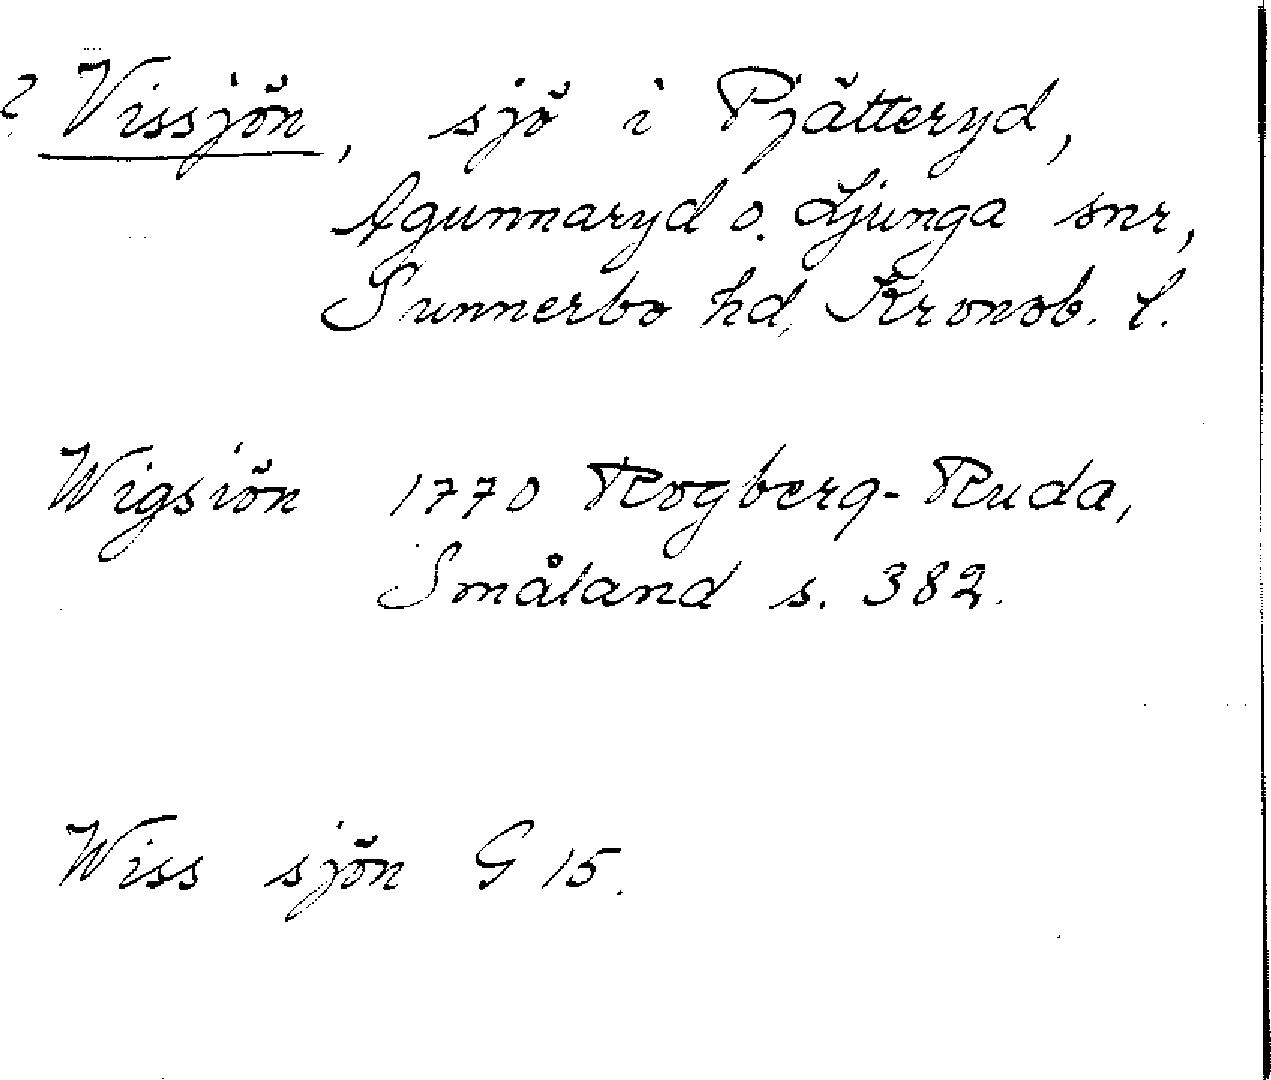 ? Vissjön, sjö i Pjätteryd,
Agunnaryd o. Ljunga snr,
Sunnerbo hd, Kronob. l.
Wigsiön 1770 Rogberg-Ruda,
Småland s. 382.
Wiss sjön G 15.